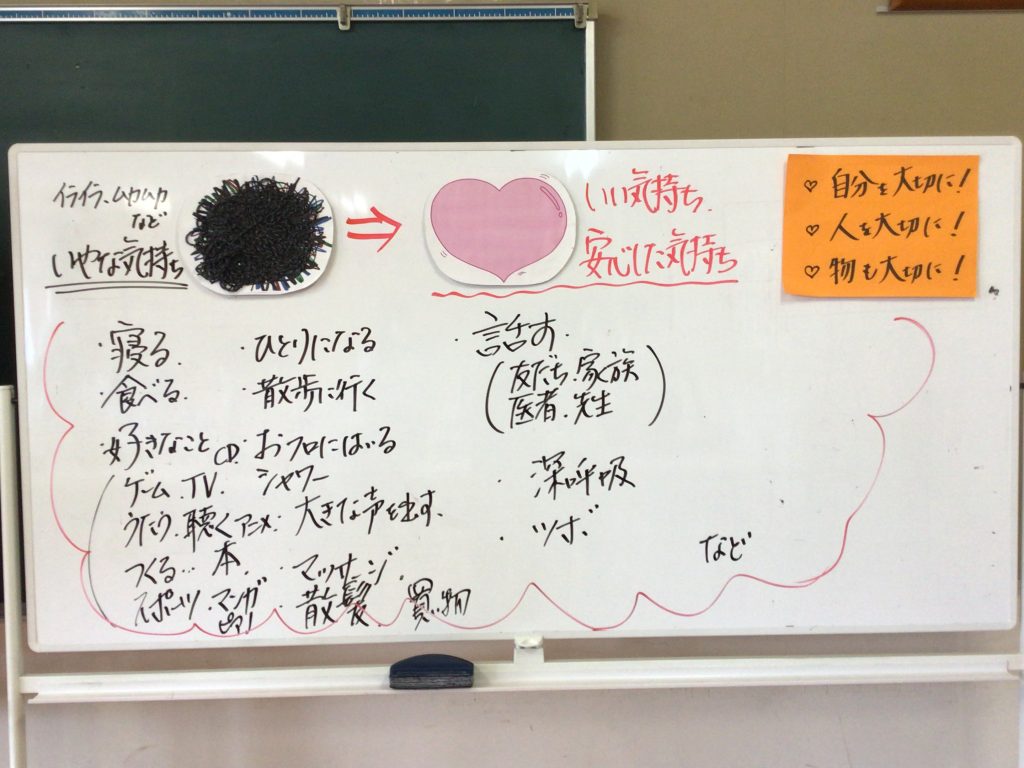 イライラ、ムカムカ
など
いやな気持ち
いい気持ち、
安心した気持ち
♡ 自分も大切に!
♡ 人を大切に!
♡ 物も大切に!
・寝る、
・食べる、
・好きなこと CD、
ゲーム、TV、
うたう、聴く アニメ、
つくる… 本、
スポーツ、マンガ
ピアノ
・ひとりになる
・散歩に行く
・おフロにはいる
シャワー
・大きな声を出す、
・マッサージ、
・散髪、買い物
・話す、
(友だち、家族
医者、先生)
・深呼吸
・ツボ
など